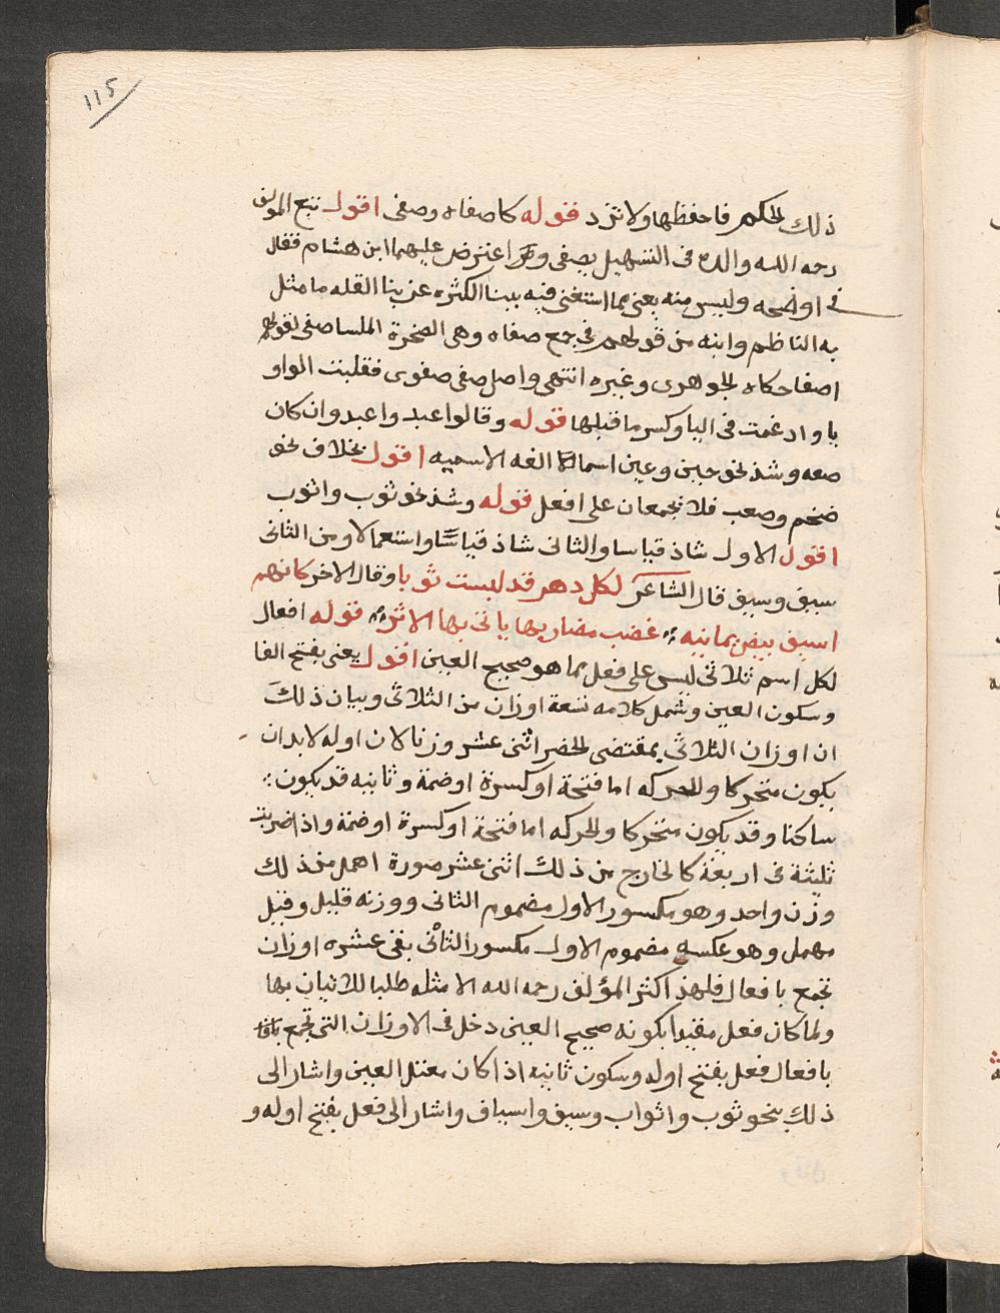 ١١٥
ذلك الحكم فاحفظها ولا تزد قوله كاصفاه وصفى اقول تبع المولف
رحمه الله والده فى التسهيل بصفى و اعترض عليهما ابن هشام فقال
فى اوضحه وليس منه يعنى مما استغنى فيه ببنا الكثره عن بنا القله ما مثل
به الناظم وابنه من قولهم فى جمع صفاه وهى الصخرة الملسا صفى لقولهم
اصفا حكاه الجوهرى وغيره انتهى واصل صفى صفوى فقلبت الواو
يا وادغمت فى اليا وكسر ما قبلها قوله وقالوا عبد واعبد وان كان
صعه وشذ نحو حين وعين اسما الغه الاسميه اقول بخلاف نحو
ضخم وصعب فلا تجمعان على افعل قوله وشذ نحو ثوب واثوب
اقول الاول شاذ قياسا والثانى شاذ قياسا واستعمالا ومن الثانى
سيف وسيف قال الشاعر لكل دهر قد لبست ثوبا وقال الاخر كانهم
اسيف بيض يمانيه غضب مضاربها باق بها الاثر قوله افعال
لكل اسم ثلاثى ليس على فعل مما هو صحيح العين اقول يعنى بفتح الفا
وسكون العين وشمل كلامه تسعة اوزان من الثلاثى وبيان ذلك
ان اوزان الثلاثى بمقتضى الحصر اثنى عشر وزنا لان اوله لابد ان
يكون متحركا والحركه اما فتحة او كسرة او ضمة وثانيه قد يكون
ساكنا وقد يكون متحركا والحركه اما فتحة او كسرة او ضمة واذا ضربت
ثلثة فى اربعة كا لخارج من ذلك اثنى عشر صورة اهمل من ذلك
وزن واحد وهو مكسور الاول مضموم الثانى ووزنه قليل وقيل
مهمل وهو عكسه مضموم الاول مكسور الثانى بقى عشره اوزان
تجمع بافعال فلهذ اكثر المؤلف رحمه الله الامثله طلبا للاتيان بها
ولما كان فعل مقيدا بكونه صحيح العين دخل فى الاوزان التى تجمع
بافعال فعل بفتح اوله وسكون ثانيه اذا كان معتل العين واشار الى
ذلك بنحو ثوب واثواب وسيف واسياف واشار الى فعل بفتح اوله و